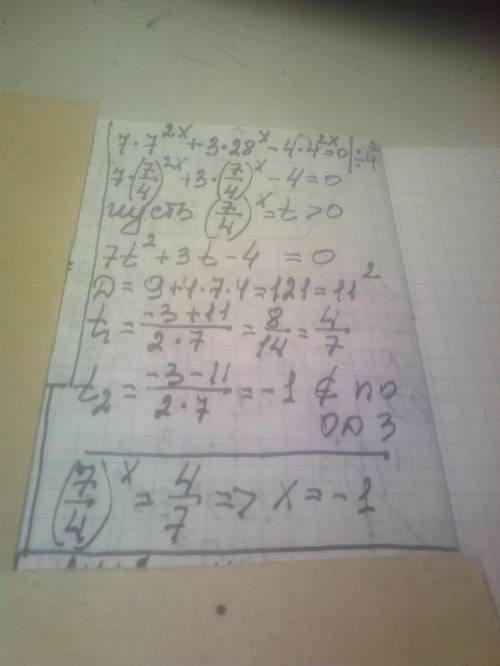 7·7^{2x} + 3·28^x - 4·4^{2x} = 0 | ÷ 4^{2x}
7·(7/4)^{2x} + 3·(7/4)^x - 4 = 0
пусть (7/4)^x = t > 0
7t² + 3t - 4 = 0
D = 9 + 4·7·4 = 121 = 11²
t₁ = (-3+11)/(2·7) = 8/14 = 4/7
t₂ = (-3-11)/(2·7) = -1 ∉ по
ОДЗ
(7/4)^x = 4/7 => x = -1